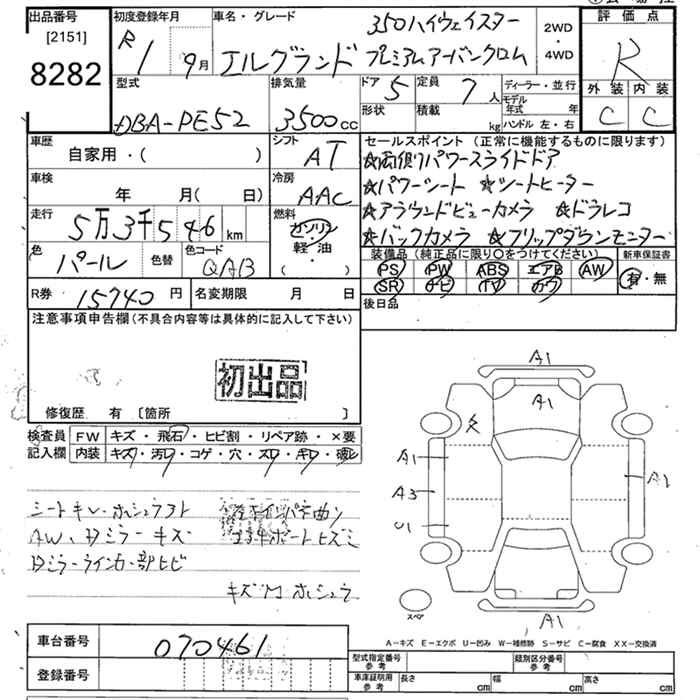 出品番号
[2151]
8282
初度登録年月
R 1 9月
車名・グレード
エルグランド
350ハイウェイスター
プレミアムアーバンクロム
2WD
・
4WD
評価点
R
外装 内装
C C
型式
DBA-PE52
排気量
3500cc
ドア 5
定員 7人
形状
積載 kg
ディーラー・並行
モデル年式 年
ハンドル 左・右
車歴
自家用・( )
シフト
AT
車検
年 月( 日)
冷房
AAC
走行
5万3千546km
燃料
ガソリン
軽・油
・
色
パール
色替
色コード
QAB
R券 15740円
名変期限 月 日
セールスポイント(正常に機能するものに限ります)
☆両側パワースライドドア
☆パワーシート ☆シートヒーター
☆アラウンドビューカメラ ☆ドラレコ
☆バックカメラ ☆フリップダウンモニター
装備品(純正品に限り○をつけてください)
新車保証書
PS PW ABS エアB AW
SR ナビ TV カワ
有・無
後日品
注意事項申告欄(不具合内容等は具体的に記入して下さい)
初出品
修復歴 有 〔箇所 〕
検査員記入欄
FW キズ・飛石・ヒビ割・リペア跡・×要
内装 キズ・汚レ・コゲ・穴・スレ・キレ・破レ
シートキレ・ホシュウアト
AW、Dミラーキズ
Dミラーウインカー部ヒビ
左キインパネ曲り
コアサポートヒズミ
キズM ホシュウ
A1
A1
A1
A3
U1
A1
A1
スペア
A-キズ E-エクボ U-凹み W-補修跡 S-サビ C-腐食 XX-交換済
車台番号
070461
登録番号
型式指定番号 参考
類別区分番号 参考
車庫証明用 参考
長さ cm
幅 cm
高さ cm